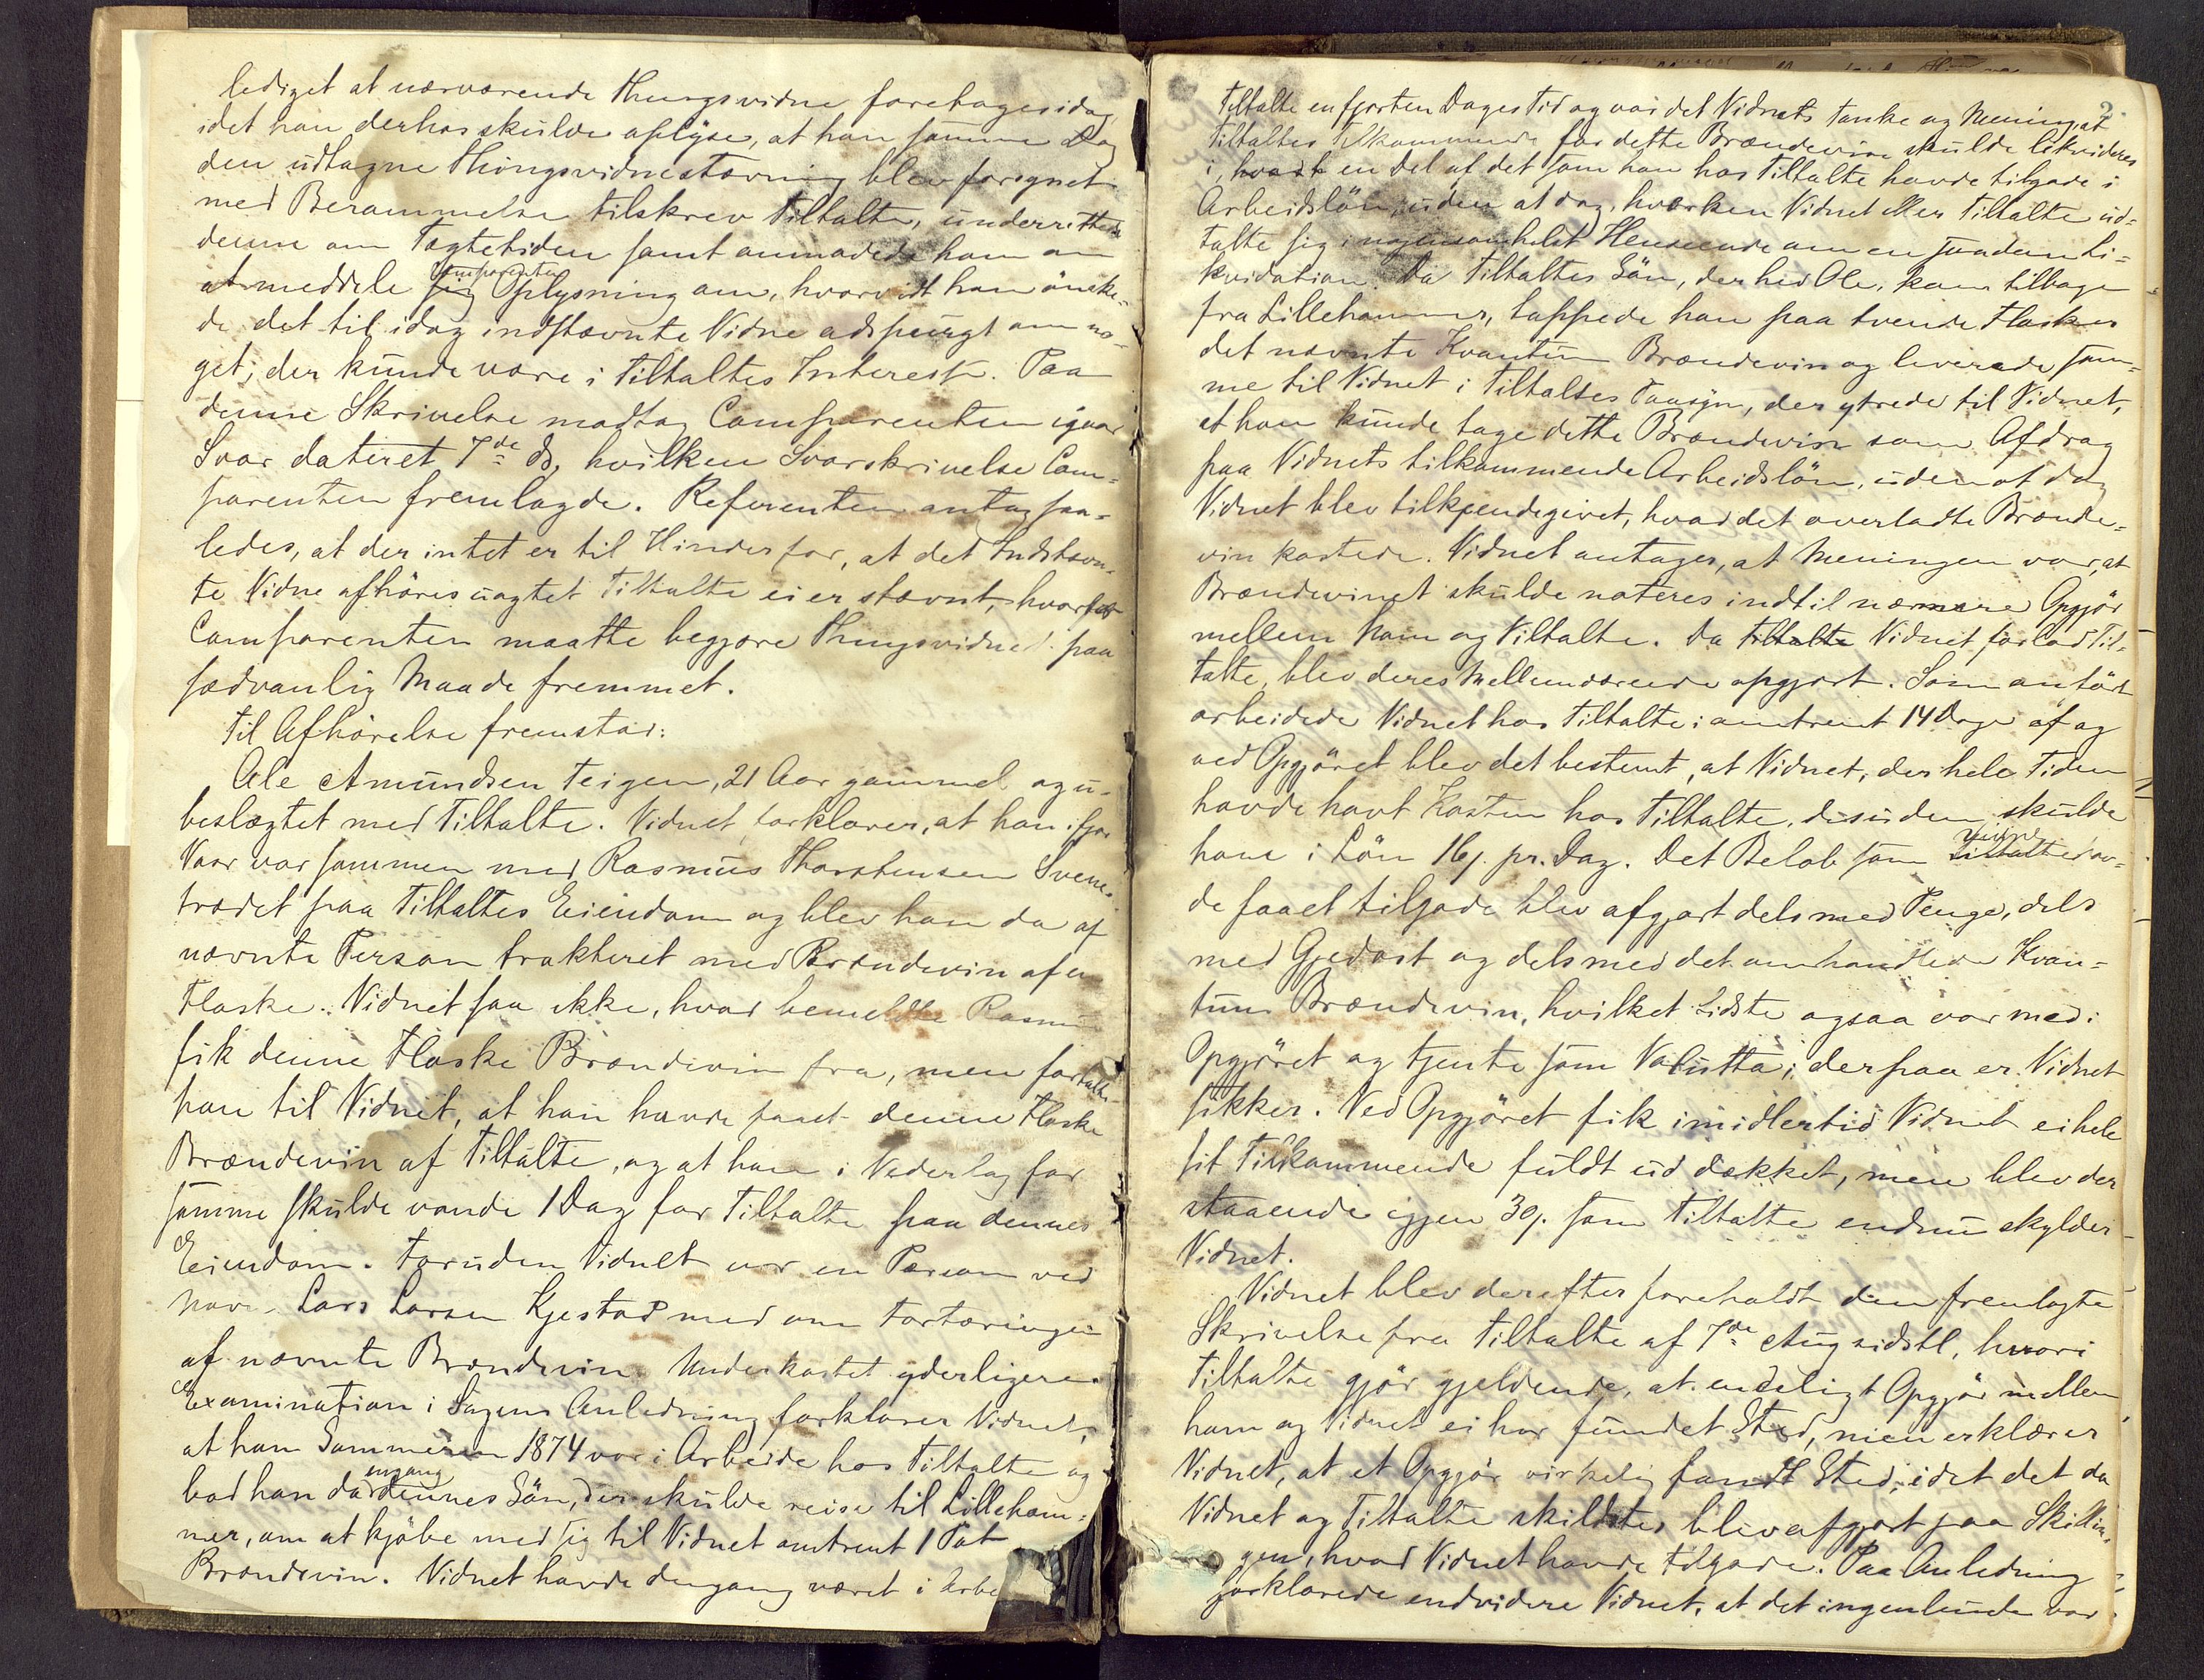 lediget at nærværende Thingsvidne foretages idag
idet han derhos skulde oplyse, at han samme Dag
den udtagne Thingsvidnestævning blev forsynet
med Berammelse tilskrev Tiltalte, underrettede
denne om Tægtetiden samt anmodede ham om
at meddele Comparenten Oplysning om, hvorvidt han önske-
de det til idag indstævnte Vidne adspurgt om no-
get, der kunde være i Tiltaltes Interesse. Paa
denne Skrivelse modtog Comparenten igaar
Svar dateret 7de ds, hvilken Svarskrivelse Com-
parenten fremlagde. Referenten antog saa-
ledes, at der intet er til Hinder for, at det Indstævn-
te Vidne afhöres uagtet Tiltalte ei er stævnt, hvorfor
Comparenten maatte begjære Thingsvidnet paa
sædvanlig Maade fremmet.
Til Afhörelse fremstod:
Ole Amundsen Teigen, 21 Aar gammel og u-
beslægtet med Tiltalte. Vidnet forklarer, at han ifjor
Vaar var sammen med Rasmus Thorstensen Svene-
trædet paa Tiltaltes Eiendom og blev han da af
nævnte Person trakteret med Brændevin af en
Flaske. Vidnet saa ikke, hvad bemeldte Rasmus
fik denne Flaske Brændevin fra, men fortalte
han til Vidnet, at han havde faaet denne Flaske
Brændevin af Tiltalte, og at han i Vederlag for
samme skulde vande 1 Dag for Tiltalte paa dennes
Eiendom. Foruden Vidnet var en Person ved
Navn Lars Larsen Kjestad med om Fortæringen
af nævnte Brændevin. Underkastet yderligere
Examination i Sagens Anledning forklarer Vidnet,
at han Sommeren 1874 var i Arbeide hos Tiltalte og
bad han da engang dennes Sön, der skulde reise til Lilleham-
mer, om at kjöbe med sig til Vidnet omtrent 1 Pot
Brændevin. Vidnet havde dengang været i Arbe
2
Tiltalte en fjorten Dages Tid og var det Vidnets Tanke og Mening, at
Tiltaltes Tilkommende for dette Brændevin skulde likvideres
i, hvad en Del af det som han hos Tiltalte havde tilgode i
Arbeidslön, uden at dog hverken Vidnet eller Tiltalte ud-
talte sig i nogensomhelst Henseende om en saadan Li-
kvidation. Da Tiltaltes Sön, der hed Ole, kom tilbage
fra Lillehammer, tappede han paa tvende Flasker
det nævnte Kvantum Brændevin og leverede sam-
me til Vidnet i Tiltaltes Paasyn, der ytrede til Vidnet,
at han kunde tage dette Brændevin som Afdrag
paa Vidnets tilkommende Arbeidslön, uden at dog
Vidnet blev tilkjendegivet, hvad det overladte Brænde-
vin kostede. Vidnet antager, at Meningen var, at
Brændevinet skulde noteres indtil nærmere Opgjör
mellem ham og Tiltalte. Da Tiltalte Vidnet forlod Til-
talte, blev deres Mellemværende opgjort. Som anfört
arbeidede Vidnet hos Tiltalte i omtrent 14 Dage af og
ved Opgjöret blev det bestemt, at Vidnet, der hele Tiden
havde havt Kosten hos Tiltalte, desuden skulde
have i Lön 16 s. pr. Dag. Det Beløb som Vidnet hav-
de faaet tilgode blev afgjort dels med Penge, dels
med Gjedost og dels med det omhandlede Kvan-
tum Brændevin, hvilket Sidste ogsaa var med i
Opgjöret og tjente som Valutta; derpaa er Vidnet
sikker. Ved Opgjöret fik imidlertid Vidnet ei hele
sit Tilkommende fuldt ud dækket, men blev der
staaende igjen 30 s. som Tiltalte endnu skylder
Vidnet.
Vidnet blev derefter foreholdt den fremlagte
Skrivelse fra Tiltalte af 7de Aug sidstl, hvori
Tiltalte gjör gjeldende, at endeligt Opgjör mellem
ham og Vidnet ei har fundet Sted, men erklærer
Vidnet, at et Opgjör virkelig fandt Sted, idet det da
Vidnet og Tiltalte skildtes blev afgjort paa Skillin-
gen, hvad Vidnet havde tilgode. Paa Anledning
forklarede endvidere Vidnet, at det ingenlunde var